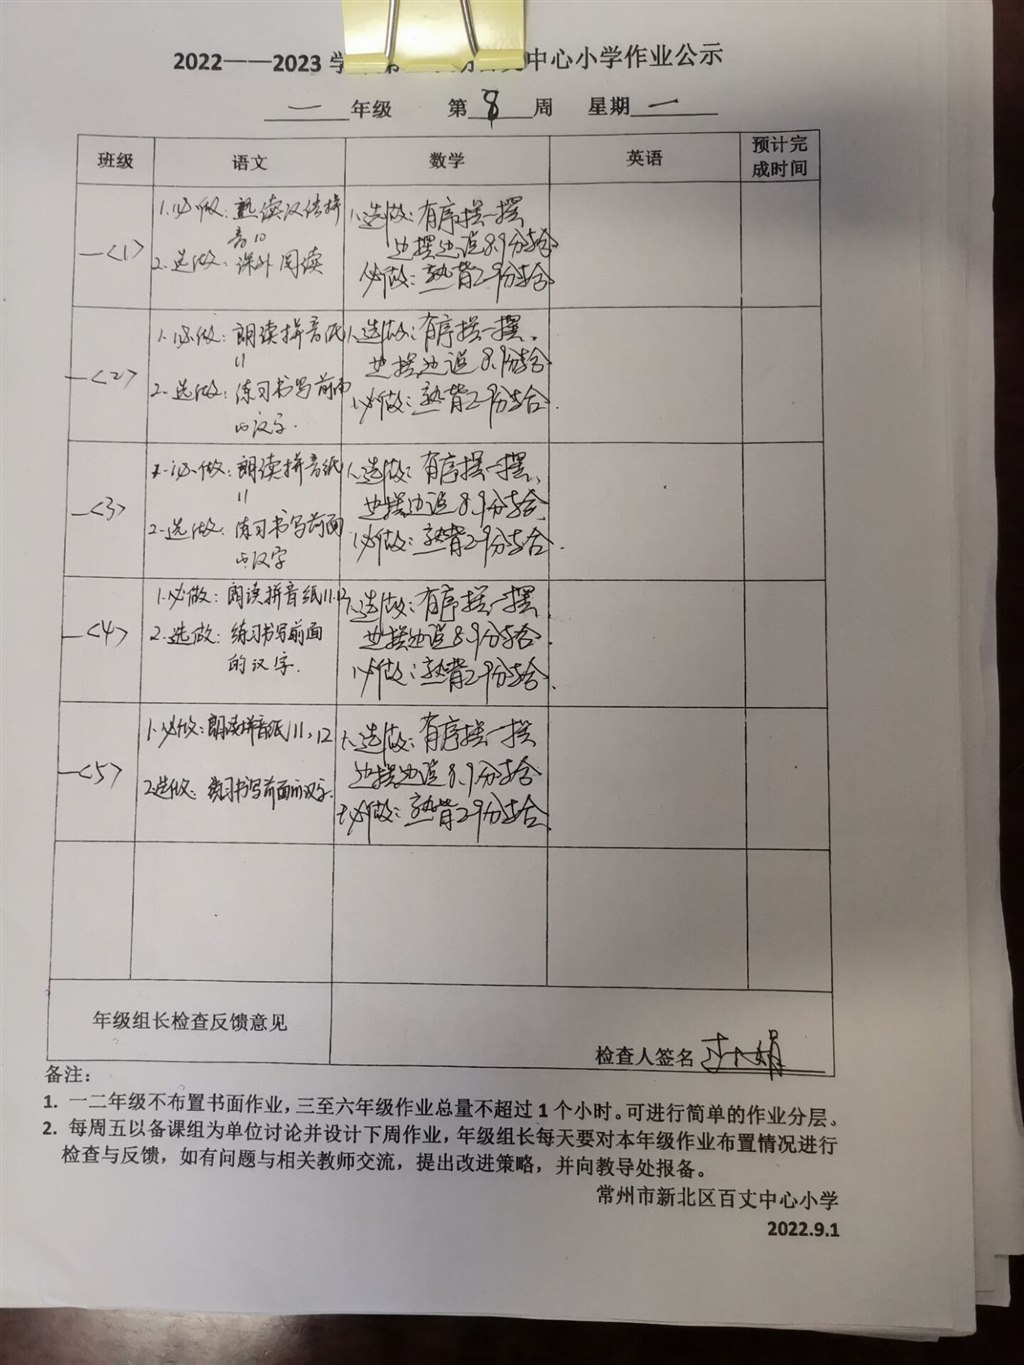 2022——2023 学 中心小学作业公示
一 年级 第 8 周 星期 一
班级 语文 数学 英语 预计完
成时间
一<1>
1.必做：熟读汉语拼
音10
2.选做：课外阅读
1.选做：有序摆一摆
边摆边说8.9分与合
必做：熟背2-9分与合
一<2>
1.必做：朗读拼音纸
11
2.选做：练习书写前面
的汉字.
1.选做：有序摆一摆.
边摆边说8.9分与合
1.必做：熟背2-9分与合.
一<3>
1.必做：朗读拼音纸
11
2.选做：练习书写前面
的汉字
1.选做：有序摆一摆、
边摆边说8.9分与合
1.必做：熟背2-9分与合.
一<4>
1.必做：朗读拼音纸11.12
2.选做：练习书写前面
的汉字.
1.选做：有序摆一摆.
边摆边说8.9分与合
1.必做：熟背2-9分与合.
一<5>
1.必做：朗读拼音纸11，12
2.选做：练习书写前面的汉字.
1.选做：有序摆一摆
边摆边说8.9分与合
必做：熟背2-9分与合.
年级组长检查反馈意见
检查人签名
备注：
1. 一二年级不布置书面作业，三至六年级作业总量不超过 1 个小时。可进行简单的作业分层。
2. 每周五以备课组为单位讨论并设计下周作业，年级组长每天要对本年级作业布置情况进行
检查与反馈，如有问题与相关教师交流，提出改进策略，并向教导处报备。
常州市新北区百丈中心小学
2022.9.1